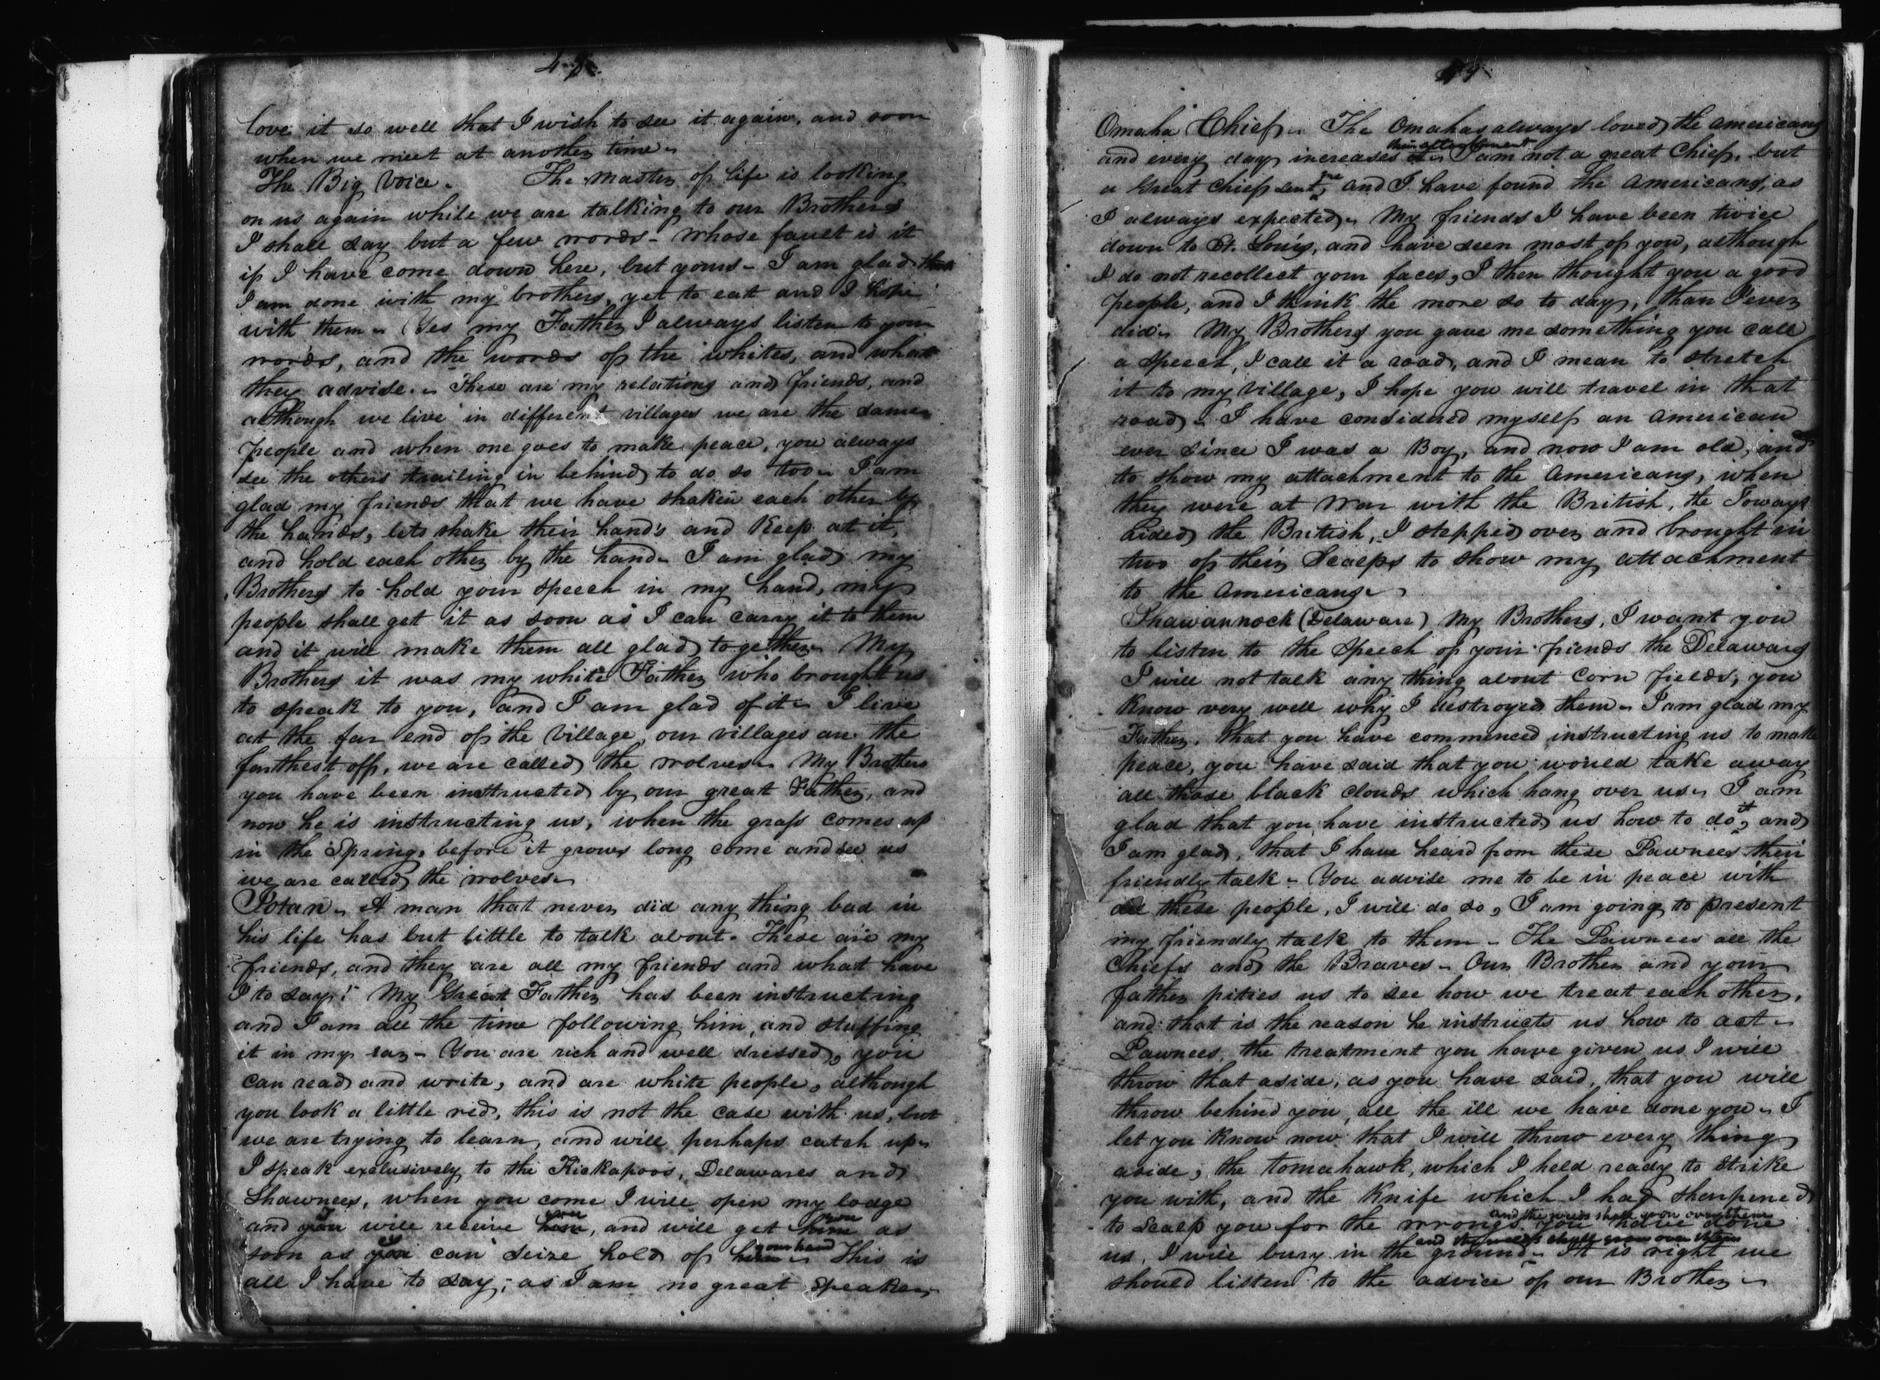 love it so well that I wish to see it again, and soon
when we meet at another time.
The Big Voice. The master of life is looking
on us again while we are talking to our Brothers
I shall say but a few words - whose fault is it
if I have come down here, but yours - I am glad that
I am done with my brothers, yet to eat and I hope
with them. Yes my Father I always listen to your
words, and the words of the whites, and what
they advise. These are my relations and friends, and
although we live in different villages we are the same
people and when one goes to make peace, you always
see the others trailing in behind to do so too. I am
glad my friends that we have shaken each other by
the hands, lets shake their hand's and keep at it,
and hold each other by the hand. I am glad my
Brothers to hold your speech in my hand, my
people shall get it as soon as I can carry it to them
and it will make them all glad together. My
Brothers it was my white Father who brought us
to speak to you, and I am glad of it. I live
at the far end of the village, our villages are the
farthest off, we are called the wolves. My Brothers
you have been instructed by our great Father, and
now he is instructing us, when the grass comes up
in the Spring, before it grows long come and see us
we are called the wolves.
Potan. A man that never did any thing bad in
his life has but little to talk about. These are my
friends, and they are all my friends and what have
I to say! My Great Father has been instructing
and I am all the time following him, and stuffing
it in my ear - You are rich and well dressed, you
can read and write, and are white people, although
you look a little red, this is not the case with us, but
we are trying to learn, and will perhaps catch up.
I speak exclusively to the Kickapoos, Delawares and
Shawnees, when you come I will open my lodge
and you I will receive him you, and will get him you as
soon as you I can seize hold of him your hand. This is
all I have to say, as I am no great speaker.
Omaha Chief. The Omahas always loved the Americans
and every day increases their attachment. I am not a great Chief, but
a Great Chief sent me, and I have found the Americans, as
I always expected. My friends I have been twice
down to St. Louis, and have seen most of you, although
I do not recollect your faces, I then thought you a good
people, and I think the more so to day, than I ever
did. My Brothers you gave me something you call
a speech, I call it a road, and I mean to stretch
it to my village, I hope you will travel in that
road. I have considered myself an American
ever since I was a Boy, and now I am old, and
to show my attachment to the Americans, when
they were at War with the British, the Ioways
sided the British, I stepped over and brought in
two of their Scalps to show my attachment
to the Americans.
Shawannock (Delaware) My Brothers, I want you
to listen to the speech of your friends the Delawars
I will not talk any thing about corn fields, you
know very well why I destroyed them. I am glad my
Father, that you have commenced instructing us to make
peace, you have said that you would take away
all those black clouds which hang over us. I am
glad that you have instructed us how to do it, and
I am glad, that I have heard from these Pawnees their
friendly talk. You advise me to be in peace with
all these people, I will do so, I am going to present
my friendly talk to them. The Pawnees all the
Chiefs and the Braves. Our Brother and your
father pities us to see how we treat each other,
and that is the reason he instructs us how to act.
Pawnees, the treatment you have given us I will
throw that aside, as you have said, that you will
throw behind you, all the ill we have done you. I
let you know now, that I will throw every thing
aside, the tomahawk, which I held ready to strike
you with, and the knife which I had sharpened
to scalp you for the wrongs you have done
us, I will bury in the ground and the weeds shall grow over them. It is right we
should listen to the advice of our Brother.